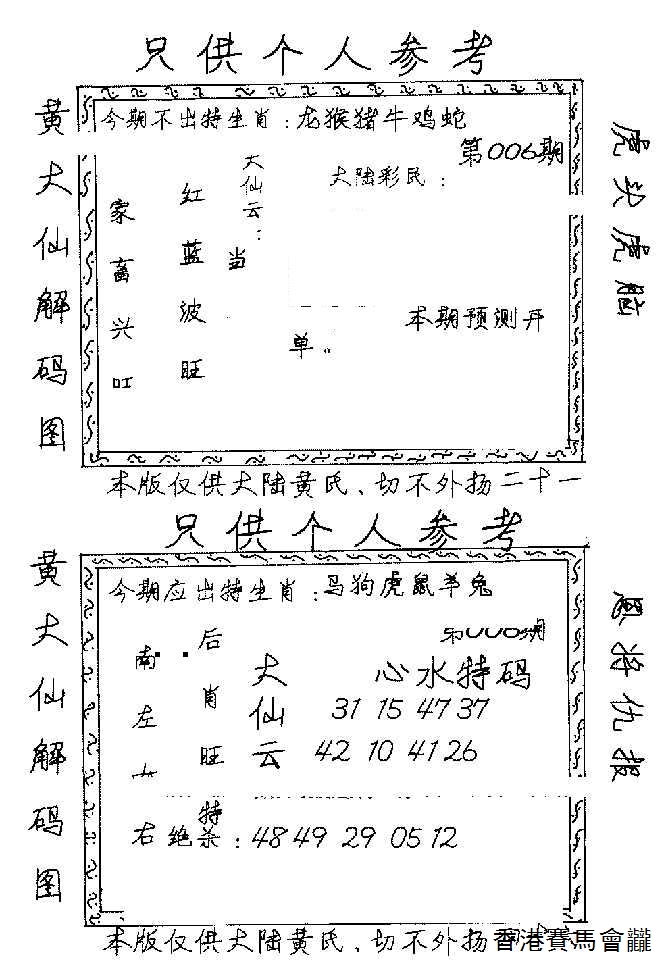 只供个人参考
黄大仙解码图
今期不出特生肖：龙猴猪牛鸡蛇
第006期
大陆彩民：
大仙云：
当
红蓝波旺
家畜兴旺
本期预测开
单。
虎头虎脑
本版仅供大陆黄民、切不外扬二十一
只供个人参考
黄大仙解码图
今期应出特生肖：马狗虎鼠羊兔
第006期
心水特码
大仙云
31 15 47 37
42 10 41 26
后肖旺特
南
左
右绝杀：48 49 29 05 12
恩将仇报
本版仅供大陆黄民、切不外扬
香港賽馬會